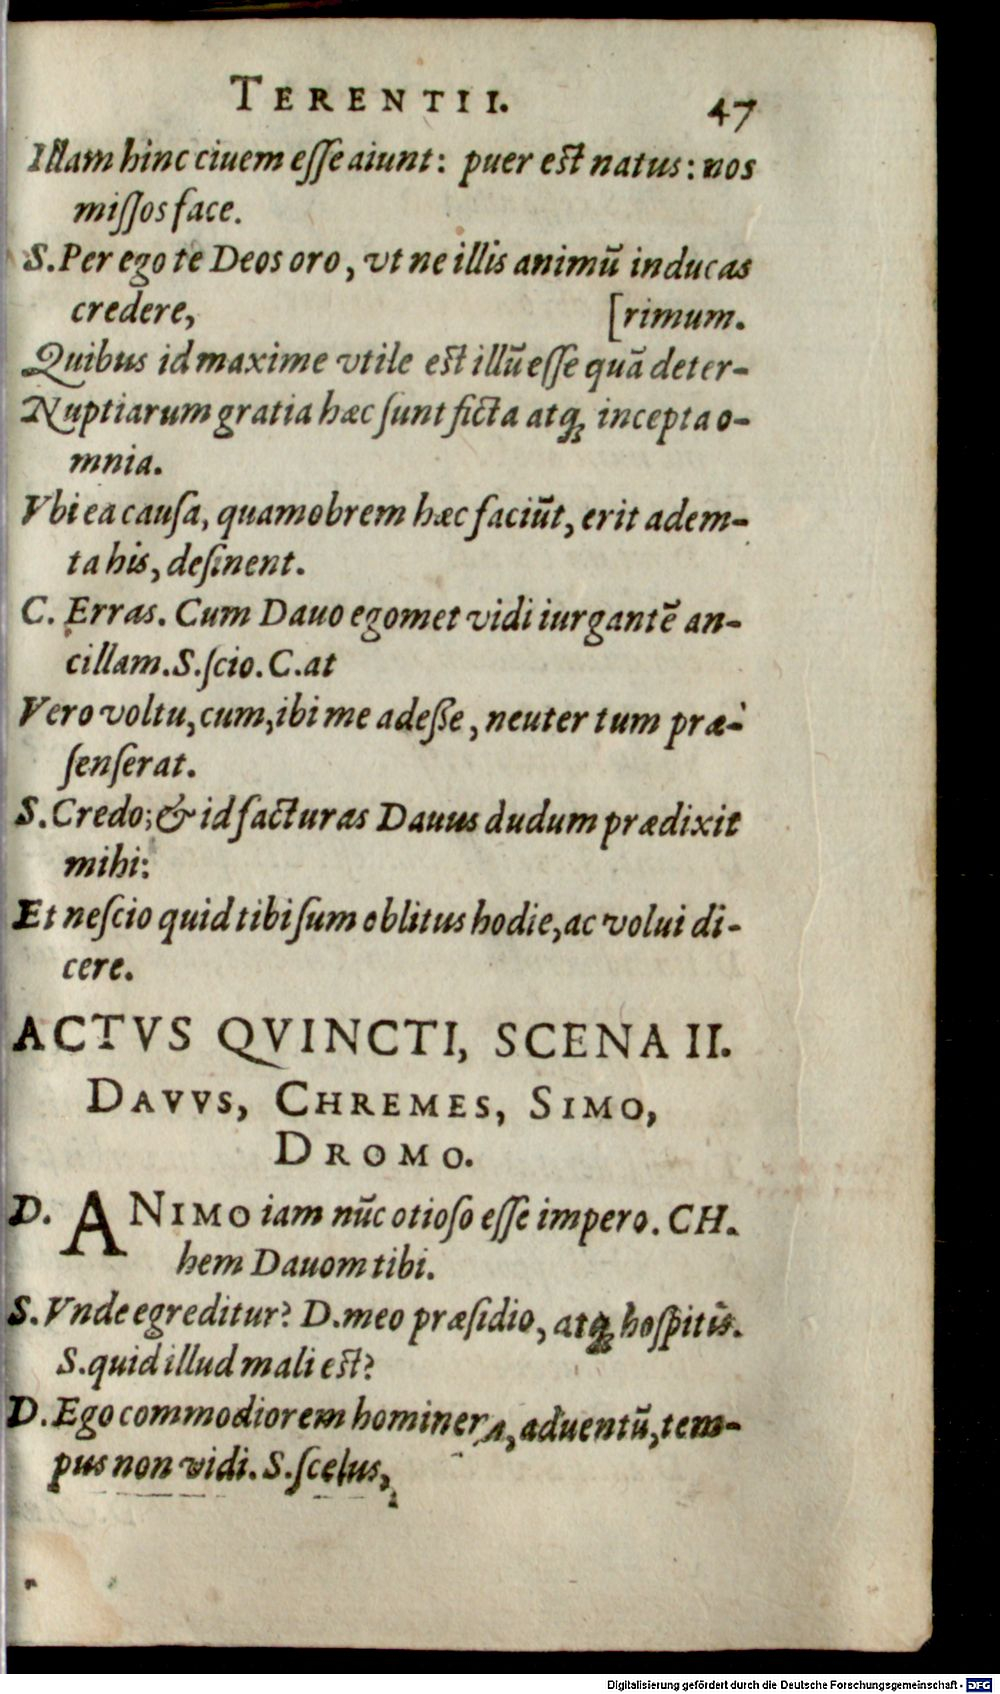 TERENTII. 47
Illam hinc ciuem eſſe aiunt: puer est natus: nos
miſſos face.
S. Per ego te Deos oro, vt ne illis animū inducas
credere, [rimum.
Quibus id maxime vtile est illū eſſe quā deter-
Nuptiarum gratia hæc ſunt ficta atq; incepta o-
mnia.
Vbi ea cauſa, quamobrem hæc faciūt, erit adem-
ta his, deſinent.
C. Erras. Cum Dauo egomet vidi iurgantē an-
cillam. S. ſcio. C. at
Vero voltu, cum, ibi me adeſſe, neuter tum præ-
ſenſerat.
S. Credo; & id facturas Dauus dudum prædixit
mihi:
Et neſcio quid tibi ſum oblitus hodie, ac volui di-
cere.
ACTVS QVINCTI, SCENA II.
DAVVS, CHREMES, SIMO,
DROMO.
D. ANIMO iam nūc otioſo eſſe impero. CH.
hem Dauom tibi.
S. Vnde egreditur? D. meo præſidio, atq; hoſpitis.
S. quid illud mali est?
D. Ego commodiorem hominem, aduentū, tem-
pus non vidi. S. ſcelus,
Digitalisierung gefördert durch die Deutsche Forschungsgemeinschaft - DFG